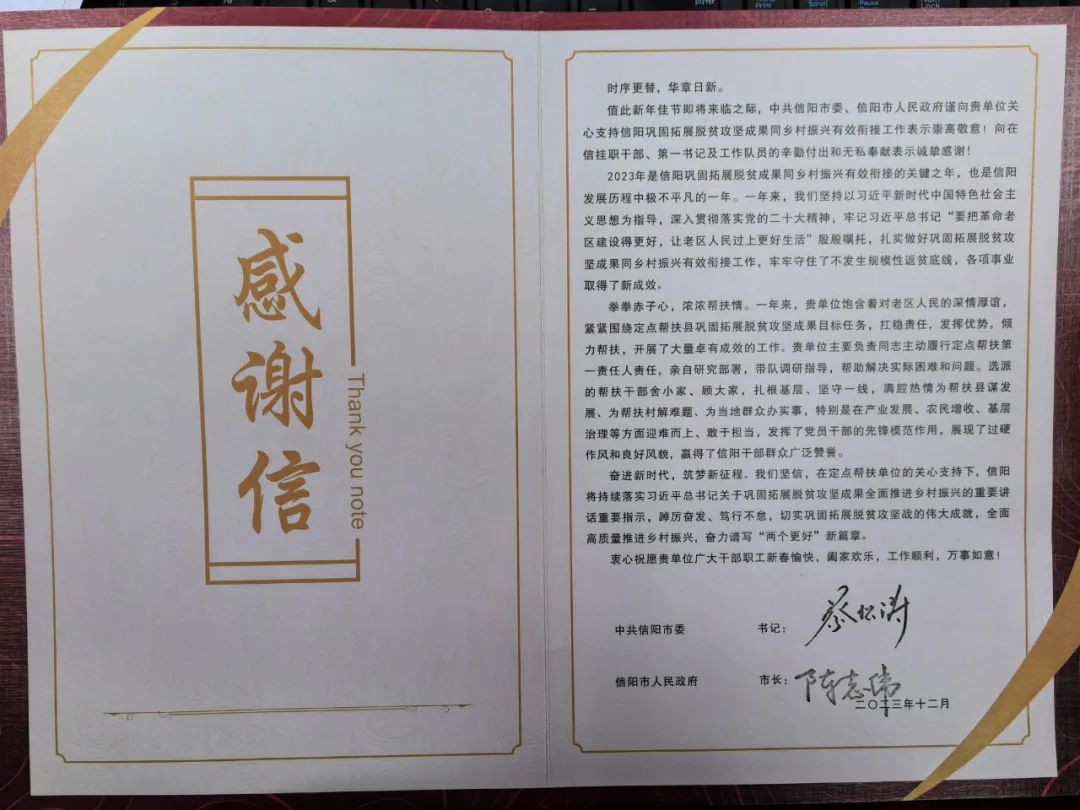 感谢信
Thank you note
时序更替，华章日新。
值此新年佳节即将来临之际，中共信阳市委、信阳市人民政府谨向贵单位关
心支持信阳巩固拓展脱贫攻坚成果同乡村振兴有效衔接工作表示崇高敬意！向在
信挂职干部、第一书记及工作队员的辛勤付出和无私奉献表示诚挚感谢！
2023年是信阳巩固拓展脱贫成果同乡村振兴有效衔接的关键之年，也是信阳
发展历程中极不平凡的一年。一年来，我们坚持以习近平新时代中国特色社会主
义思想为指导，深入贯彻落实党的二十大精神，牢记习近平总书记“要把革命老
区建设得更好，让老区人民过上更好生活”殷殷嘱托，扎实做好巩固拓展脱贫攻
坚成果同乡村振兴有效衔接工作，牢牢守住了不发生规模性返贫底线，各项事业
取得了新成效。
拳拳赤子心，浓浓帮扶情。一年来，贵单位饱含着对老区人民的深情厚谊，
紧紧围绕定点帮扶县巩固拓展脱贫攻坚成果目标任务，扛稳责任，发挥优势，倾
力帮扶，开展了大量卓有成效的工作。贵单位主要负责同志主动履行定点帮扶第
一责任人责任，亲自研究部署，带队调研指导，帮助解决实际困难和问题。选派
的帮扶干部舍小家、顾大家，扎根基层、坚守一线，满腔热情为帮扶县谋发
展、为帮扶村解难题、为当地群众办实事，特别是在产业发展、农民增收、基层
治理等方面迎难而上、敢于担当，发挥了党员干部的先锋模范作用，展现了过硬
作风和良好风貌，赢得了信阳干部群众广泛赞誉。
奋进新时代，筑梦新征程。我们坚信，在定点帮扶单位的关心支持下，信阳
将持续落实习近平总书记关于巩固拓展脱贫攻坚成果全面推进乡村振兴的重要讲
话重要指示，踔厉奋发、笃行不怠，切实巩固拓展脱贫攻坚战的伟大成就，全面
高质量推进乡村振兴，奋力谱写“两个更好”新篇章。
衷心祝愿贵单位广大干部职工新春愉快，阖家欢乐，工作顺利，万事如意！
中共信阳市委 书记：蔡松涛
信阳市人民政府 市长：陈志伟
二〇二三年十二月